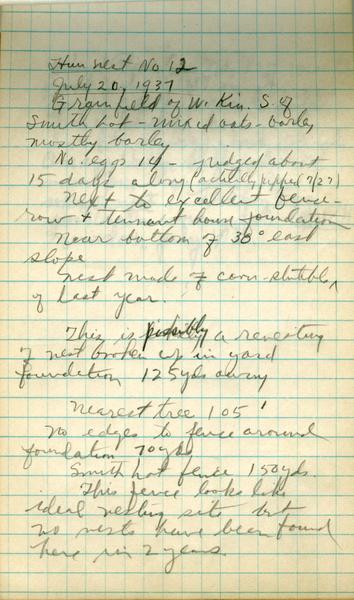 Hun nest No 12
July 20, 1937
Grainfield of W. Kin. S. of
Smith lot - mixed oats - barley
mostly barley
No. eggs 14 - judged about
15 days along (actually pipped 7/27)
Next to excellent fence-
row + tennant house foundation
Near bottom of 30° east
slope
Nest made of corn-stubble
of last year.
This is possibly a renesting
of nest broken up in yard
foundation 125 yds away
Nearest tree 105'
No edges to fence around
foundation 70 yds
Smith lot fence 150 yds.
This fence looks like
ideal nesting site but
no nests have been found
here in 2 years